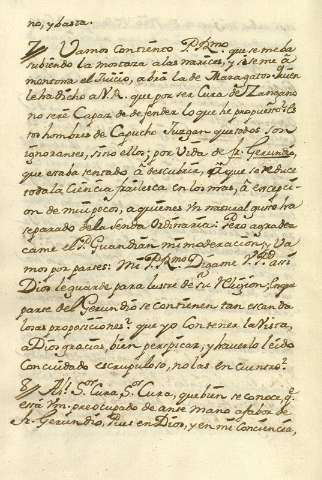 no, y basta.
7// Vamos Contiento P. Rmo. que se me ba
subiendo la mostaza a las narices, y si se me a
montona el Juicio, abrá la de Maragatos. Quien
le ha dicho a V.R. que por ser Cura de Zangano
no seré Capaz de defender lo que he propuesto? Es
tos hombres de Capucho Juzgan que todos son
ignorantes, sino ellos; por Vida de fr. Gerundio,
que estaba tentado à descubrir, à que se reduce
toda la Ciencia frailesca en los mas, à excepci
on de mui pocos, a quienes Un natural gusto ha
separado de la senda Ordinaria: Pero agradez
came el P. Guardian mi moderacion, y Va
mos por partes: Mi P. Rmo. Digame V. Pd. assi
Dios le guarde para lustre de su Religion, En que
parte del Gerundio se contienen tan escanda
losas proposiciones? que yo con tener la Vista,
a Dios gracias, bien perspicaz, y haverlo leido
con cuidado escrupuloso, no las encuentro?
8// Ah! Sor. Cura, Sor. Cura, que bien se conoce, q.e
está Vm. preocupado de ante mano a fabor de
fr. Gerundio, Pues en Dios, y en mi Conciencia,